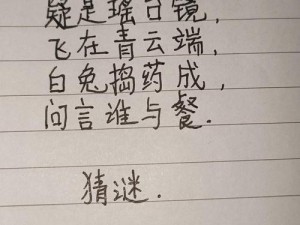 疑是瑶台镜，
飞在青云端，
白兔捣药成，
问言谁与餐．
猜谜．